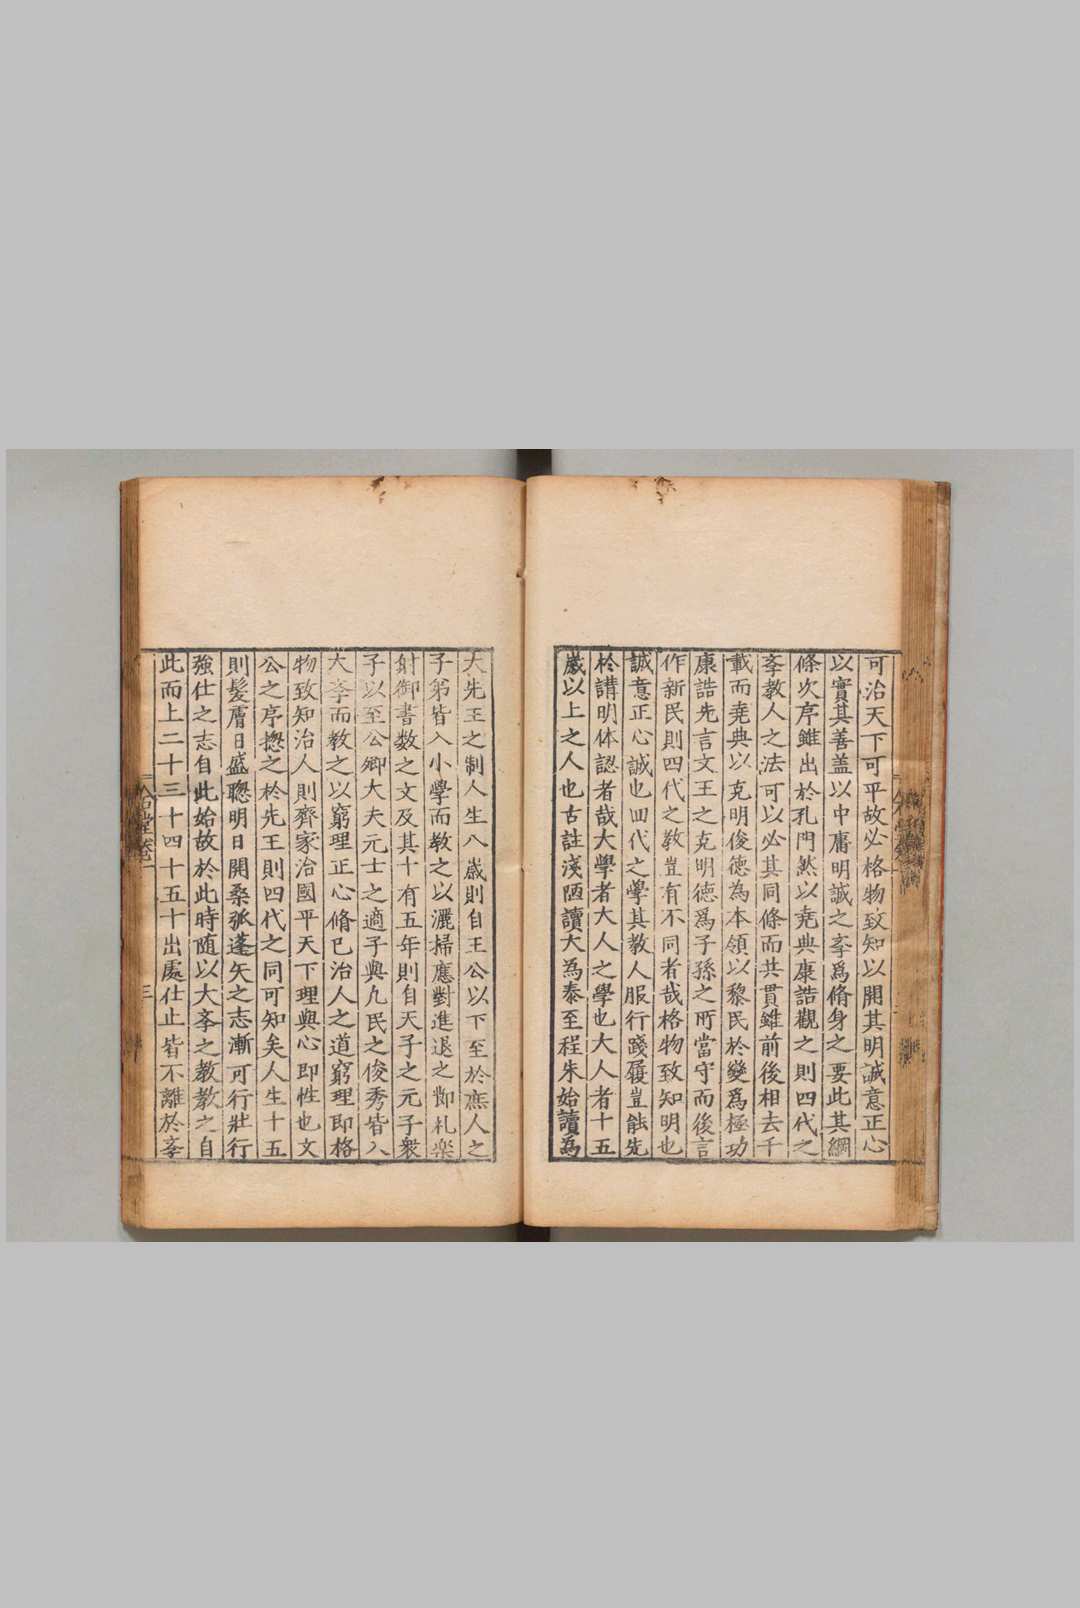 可治天下可平故必格物致知以開其明誠意正心
以實其善盖以中庸明誠之孝爲脩身之要此其綱
條次序雖出於孔門然以堯典康誥觀之則四代之
孝教人之法可以必其同條而共貫雖前後相去千
載而堯典以克明俊徳為本領以黎民於變爲極功
康誥先言文王之克明徳爲子孫之所當守而後言
作新民則四代之教豈有不同者哉格物致知明也
誠意正心誠也四代之學其教人服行踐履豈能先
於講明体認者哉大學者大人之學也大人者十五
歲以上之人也古註淺陋讀大為泰至程朱始讀為
大先王之制人生八歲則自王公以下至於庶人之
子弟皆入小學而教之以灑掃應對進退之節礼楽
射御書数之文及其十有五年則自天子之元子衆
子以至公卿大夫元士之適子與凡民之俊秀皆入
大孝而教之以窮理正心脩已治人之道窮理即格
物致知治人則齊家治國平天下理與心即性也文
公之序摠之於先王則四代之同可知矣人生十五
則髮膚日盛聰明日開桑弧蓬矢之志漸可行壯行
強仕之志自此始故於此時随以大孝之教教之自
此而上二十三十四十五十出處仕止皆不離於孝
三